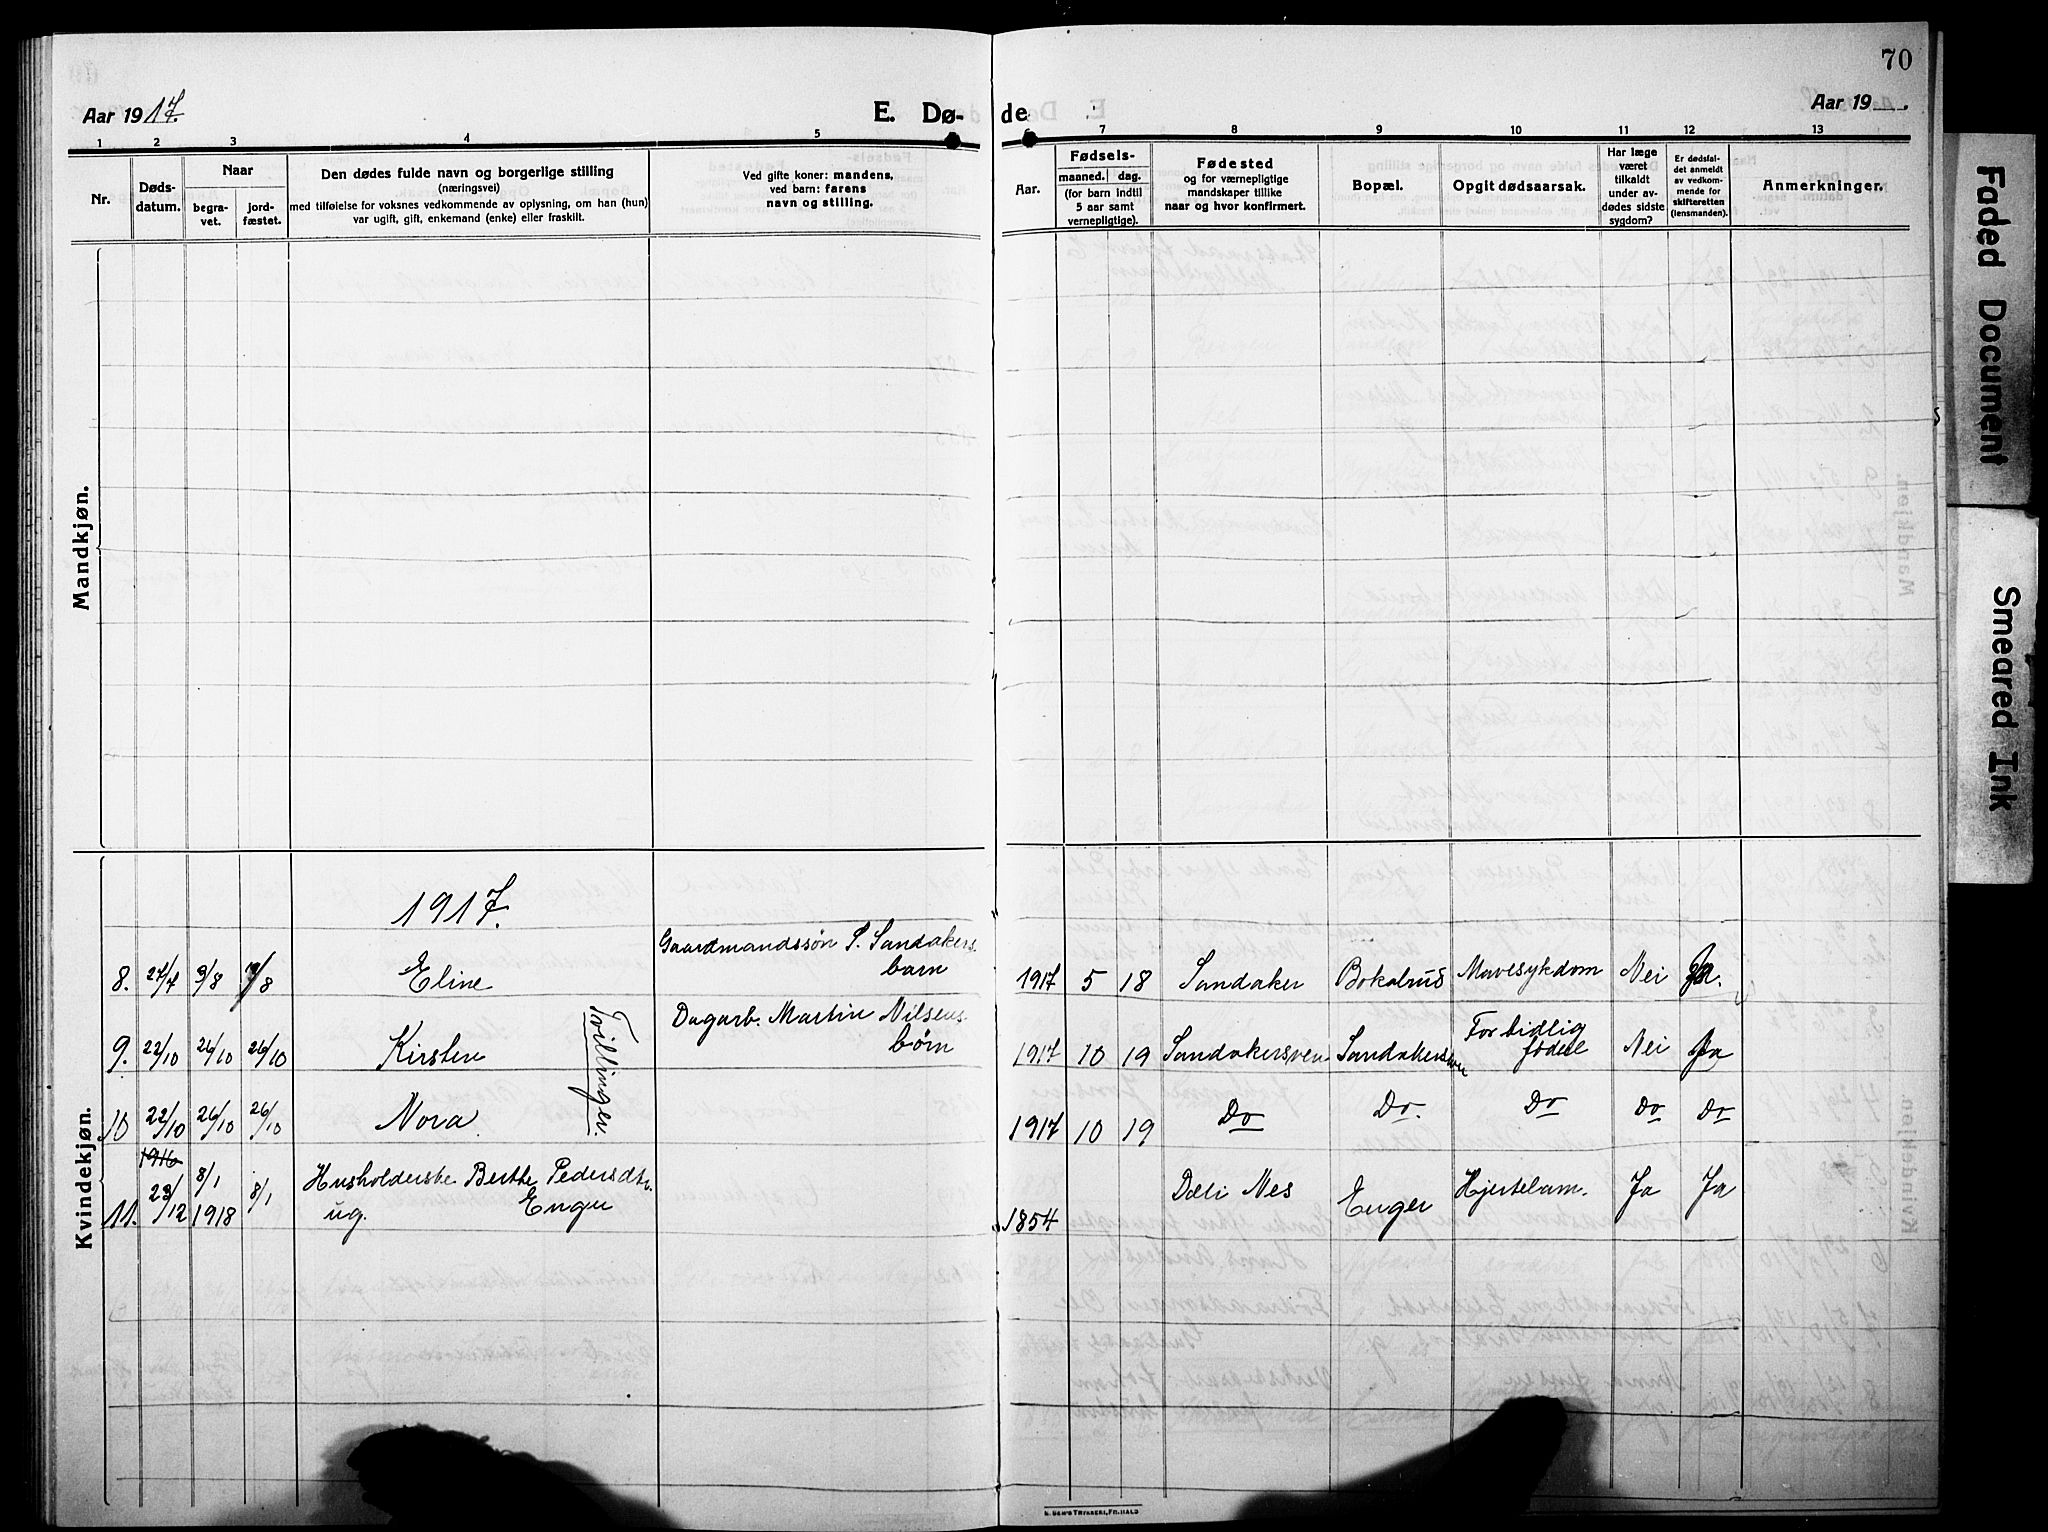 70
Aar 1917.
E. Dø-
de
Aar 19
1 2 3 4 5 6 7 8 9 10 11 12 13
Nr.
Døds-
datum.
Naar
begra-
vet.
jord-
fæstet.
Den dødes fulde navn og borgerlige stilling
(næringsvei)
med tilføielse for voksnes vedkommende av oplysning, om han (hun)
var ugift, gift, enkemand (enke) eller fraskilt.
Ved gifte koner: mandens,
ved barn: farens
navn og stilling.
Aar.
Fødsels-
maaned. dag.
(for barn indtil
5 aar samt
vernepligtige).
Fødested
og for værnepligtige
mandskaper tillike
naar og hvor konfirmert.
Bopæl.
Opgit dødsaarsak.
Har læge
været
tilkaldt
under av-
dødes sidste
sygdom?
Er dødsfal-
det anmeldt
av vedkom-
mende for
skifteretten
(lensmanden).
Anmerkninger.
Mandkjøn.
Kvindekjøn.
1917.
8. 9/8 Eline Gaardmandssøn P. Sandakers
barn 1917 5 18 Sandaker Mavesykdom Nei Ja.
9. 22/10 26/10 26/10 Kirsten Tvillinger. Dagarb. Martin Nilsens
børn 1917 10 19 Sandakersven Sandakersven For tidlig
födsel Nei Ja
10 22/10 26/10 26/10 Nora. 1917 10 19 Do Do. Do Do Do
1916
11. 23/12 8/1
1918 8/1 Husholderske Berthe Pedersdtr.
ug. Enger 1854 Dæli Nes Enger Hjertelam. Ja Ja
Faded Document
Smeared Ink